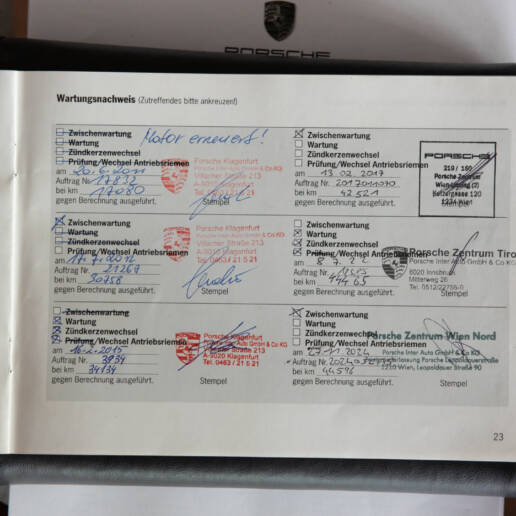 PORSCHE
Wartungsnachweis (Zutreffendes bitte ankreuzen!)
Zwischenwartung
Wartung
Zündkerzenwechsel
Prüfung/Wechsel Antriebsriemen
Motor erneuert!
am 20.6.2011
Auftrag Nr. 17832
bei km 17080
gegen Berechnung ausgeführt.
Porsche Klagenfurt
Porsche Inter Auto GmbH & Co KG
Villacher Straße 213
A-9020 Klagenfurt
Stempel
Zwischenwartung
Wartung
Zündkerzenwechsel
Prüfung/Wechsel Antriebsriemen
am
Auftrag Nr. 21267
bei km 30758
gegen Berechnung ausgeführt.
Porsche Klagenfurt
Porsche Inter Auto GmbH & Co KG
Villacher Straße 213
A-9020 Klagenfurt
Tel. 0463/21 5 21
Stempel
Zwischenwartung
Wartung
Zündkerzenwechsel
Prüfung/Wechsel Antriebsriemen
am
Auftrag Nr. 3934
bei km 34134
gegen Berechnung ausgeführt.
Porsche Klagenfurt
Porsche Inter Auto GmbH & Co KG
Villacher Straße 213
A-9020 Klagenfurt
Tel. 0463/21 5 21
Stempel
Zwischenwartung
Wartung
Zündkerzenwechsel
Prüfung/Wechsel Antriebsriemen
am 13.02.2017
Auftrag Nr.
bei km 42521
gegen Berechnung ausgeführt.
PORSCHE
219 / 150
Porsche Zentrum
Wien-Liesing (2)
Ketzergasse 120
1234 Wien
Stempel
Zwischenwartung
Wartung
Zündkerzenwechsel
Prüfung/Wechsel Antriebsriemen
am
Auftrag Nr.
bei km 44465
gegen Berechnung ausgeführt.
Porsche Zentrum Tirol
Porsche Inter Auto GmbH & Co KG
6020 Innsbruck
Mitterweg 26
Tel. 0512/22755-0
Stempel
Zwischenwartung
Wartung
Zündkerzenwechsel
Prüfung/Wechsel Antriebsriemen
am 27.11.2024
Auftrag Nr.
bei km 44596
gegen Berechnung ausgeführt.
Porsche Zentrum Wien Nord
Porsche Inter Auto GmbH & Co KG
Zweigniederlassung Porsche Leopoldauerstraße
1210 Wien, Leopoldauer Straße 90
Stempel
23